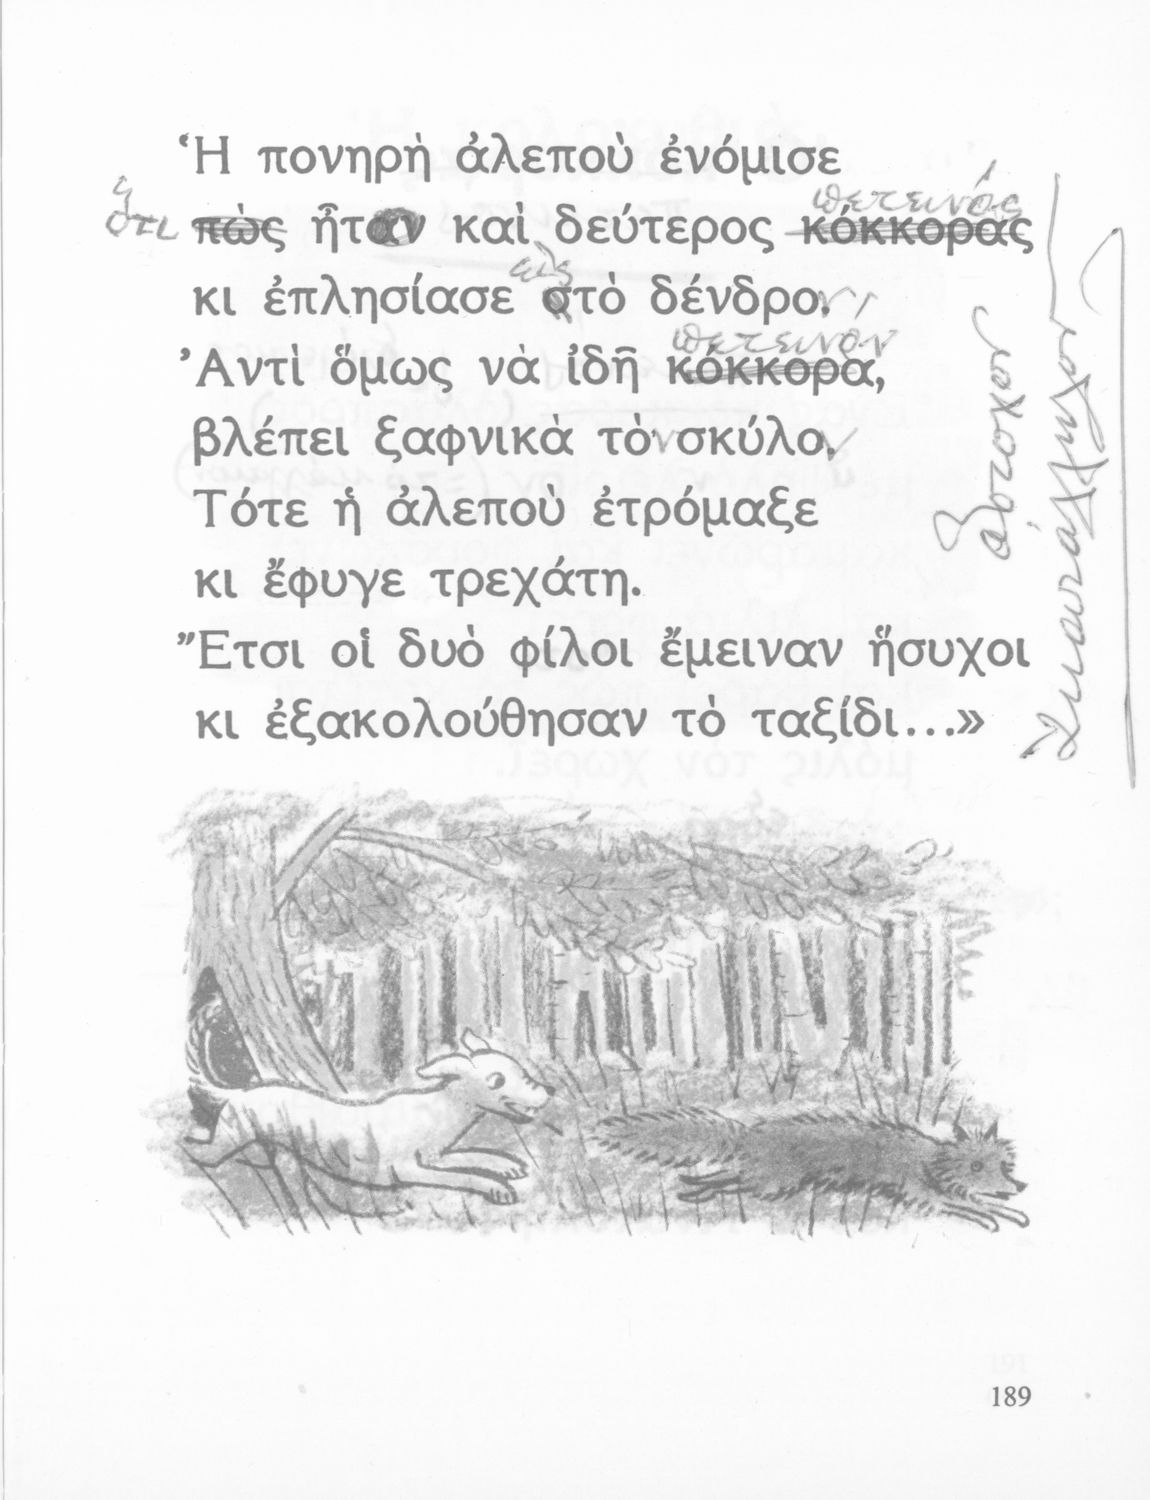 Ἡ πονηρὴ ἀλεποὺ ἐνόμισε
πετεινός
ὅτι πὼς ἦταν καὶ δεύτερος κόκκορας
εἰς
κι ἐπλησίασε στὸ δένδρο.
πετεινόν
Ἀντὶ ὅμως νὰ ἰδῆ κόκκορα,
βλέπει ξαφνικὰ τὸ σκύλο.
Τότε ἡ ἀλεποὺ ἐτρόμαξε
κι ἔφυγε τρεχάτη.
Ἔτσι οἱ δυὸ φίλοι ἔμειναν ἥσυχοι
κι ἐξακολούθησαν τὸ ταξίδι...»
ἄστοχον
189